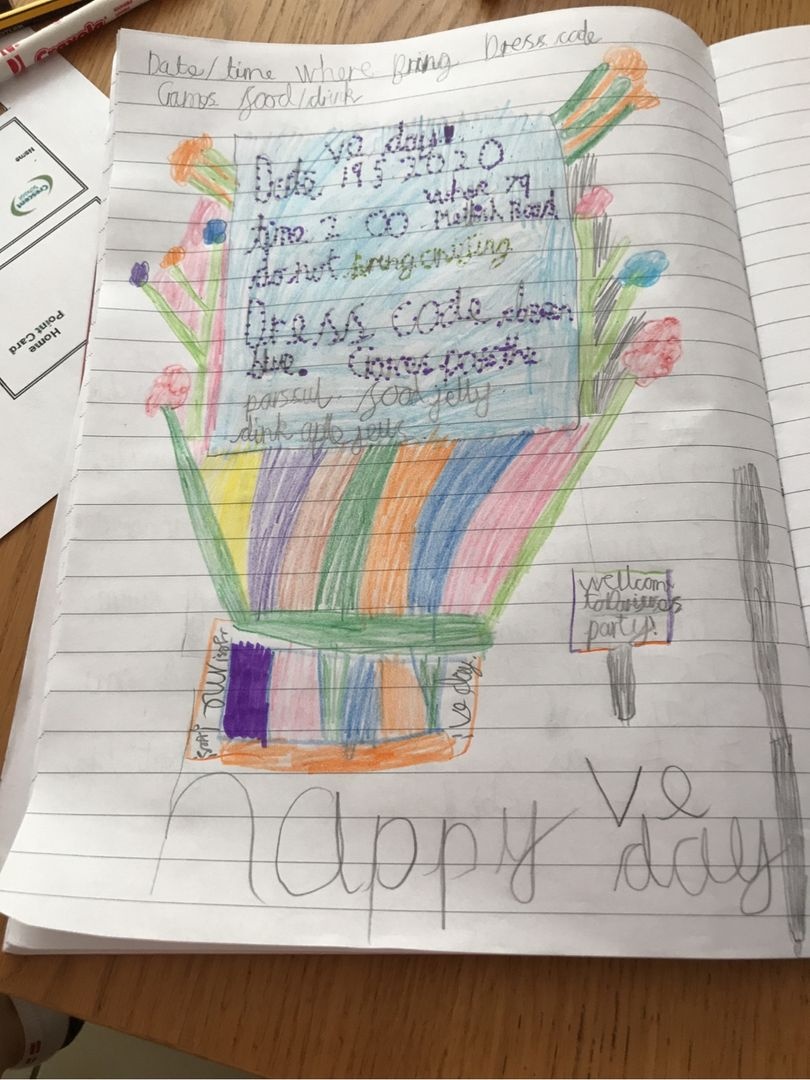 Date/time where Bring Dress code
Games food/drink
ve day!
Date 19 5 2020
where 79
time 2 00 Mellish Road
do not bring enything
Dress code
blue. Games pass the
parscul food jelly
dink
wellcom
to
party!
ve day
happy ve
day
Crayola
Crescent
Name
Home
Point Card